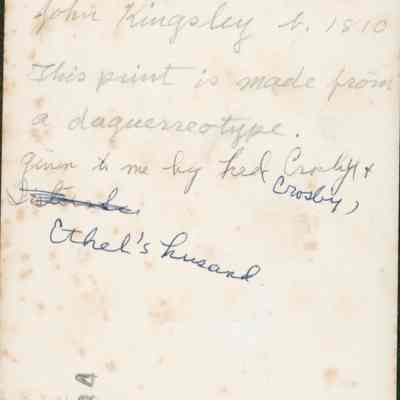 John Kingsley b. 1810
This print is made from
a daguerreotype.
given to me by Fred Crosby &
Crosby,
Ethel's husand